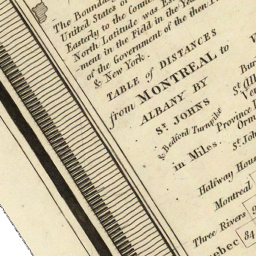 The Boundary
United States or
Easterly to the Conne
North Latitude was Es
ment in the Field in the Yea
of the Government of the then P
& New York.
TABLE of DISTANCES
from MONTREAL to
ALBANY BY
ST. JOHNS
& Bedford Turnpike
in Miles.
St. Joh
Halfway House
Montreal
Three Rivers
uebec 84